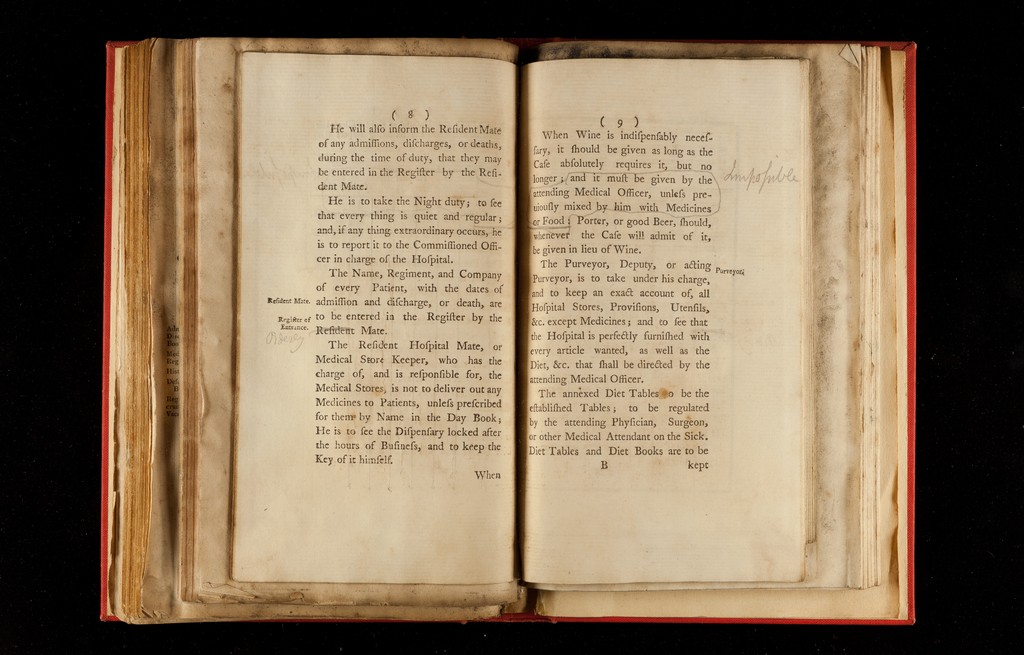 ( 8 )
He will alſo inform the Reſident Mate
of any admiſſions, diſcharges, or deaths,
during the time of duty, that they may
be entered in the Regiſter by the Reſi-
dent Mate.
He is to take the Night duty; to ſee
that every thing is quiet and regular;
and, if any thing extraordinary occurs, he
is to report it to the Commiſſioned Offi-
cer in charge of the Hoſpital.
The Name, Regiment, and Company
of every Patient, with the dates of
Reſident Mate.
admiſſion and diſcharge, or death, are
Regiſter of
Entrance.
to be entered in the Regiſter by the
Reſident Mate.
Orderly
The Reſident Hoſpital Mate, or
Medical Store Keeper, who has the
charge of, and is reſponſible for, the
Medical Stores, is not to deliver out any
Medicines to Patients, unleſs preſcribed
for them by Name in the Day Book;
He is to ſee the Diſpenſary locked after
the hours of Buſineſs, and to keep the
Key of it himſelf.
When
( 9 )
When Wine is indiſpenſably neceſ-
ſary, it ſhould be given as long as the
Caſe abſolutely requires it, but no
longer; and it muſt be given by the
Impoſsible
attending Medical Officer, unleſs pre-
viouſly mixed by him with Medicines
or Food; Porter, or good Beer, ſhould,
whenever the Caſe will admit of it,
be given in lieu of Wine.
The Purveyor, Deputy, or acting
Purveyor,
Purveyor, is to take under his charge,
and to keep an exact account of, all
Hoſpital Stores, Proviſions, Utenſils,
&c. except Medicines; and to ſee that
the Hoſpital is perfectly furniſhed with
every article wanted, as well as the
Diet, &c. that ſhall be directed by the
attending Medical Officer.
The annexed Diet Tables to be the
eſtabliſhed Tables; to be regulated
by the attending Phyſician, Surgeon,
or other Medical Attendant on the Sick.
Diet Tables and Diet Books are to be
B
kept